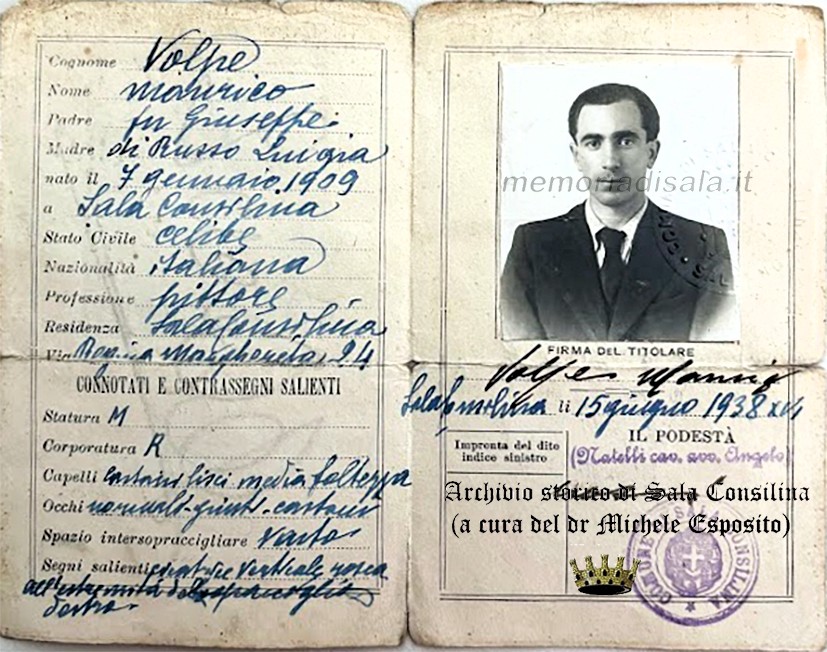 Cognome Volpe
Nome Maurico
Padre fu Giuseppe
Madre di Russo Luigia
nato il 7 gennaio 1909
a Sala Consilina
Stato Civile celibe
Nazionalità italiana
Professione pittore
Residenza Sala Consilina
Via Regina Margherita, 24
CONNOTATI E CONTRASSEGNI SALIENTI
Statura M
Corporatura R
Capelli castani lisci media foltezza
Occhi normali-giusti-castani
Spazio intersopraccigliare vasto
Segni salienti cicatrice verticale rosea
all'estremità
destro
memoriadisala.it
FIRMA DEL TITOLARE
Volpe
Sala Consilina li 15 giugno 1938 XVI
IL PODESTÀ
(Natelli cav. avv. Angelo)
Impronta del dito
indice sinistro
Archivio storico di Sala Consilina
(a cura del dr Michele Esposito)
COMUNE DI SALA CONSILINA